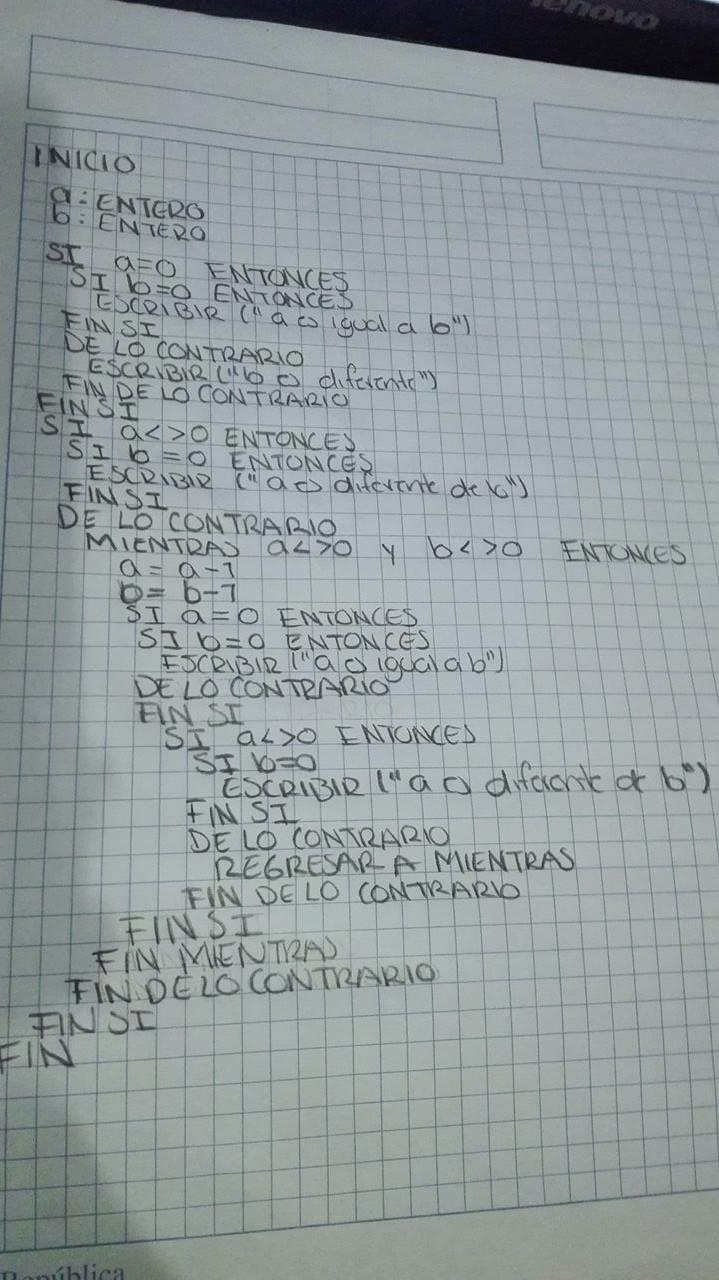 lenovo
INICIO
a: ENTERO
b: ENTERO
SI a=0 ENTONCES
SI b=0 ENTONCES
ESCRIBIR ("a es igual a b")
FIN SI
DE LO CONTRARIO
ESCRIBIR ("b es diferente")
FIN DE LO CONTRARIO
FIN SI
SI a<>0 ENTONCES
SI b=0 ENTONCES
ESCRIBIR ("a es diferente de b")
FIN SI
DE LO CONTRARIO
MIENTRAS a<>0 y b<>0 ENTONCES
a= a-1
b= b-1
SI a=0 ENTONCES
SI b=0 ENTONCES
ESCRIBIR ("a es igual a b")
DE LO CONTRARIO
FIN SI
SI a<>0 ENTONCES
SI b=0
ESCRIBIR ("a es diferente de b")
FIN SI
DE LO CONTRARIO
REGRESAR A MIENTRAS
FIN DE LO CONTRARIO
FIN SI
FIN MIENTRAS
FIN DE LO CONTRARIO
FIN SI
FIN
República